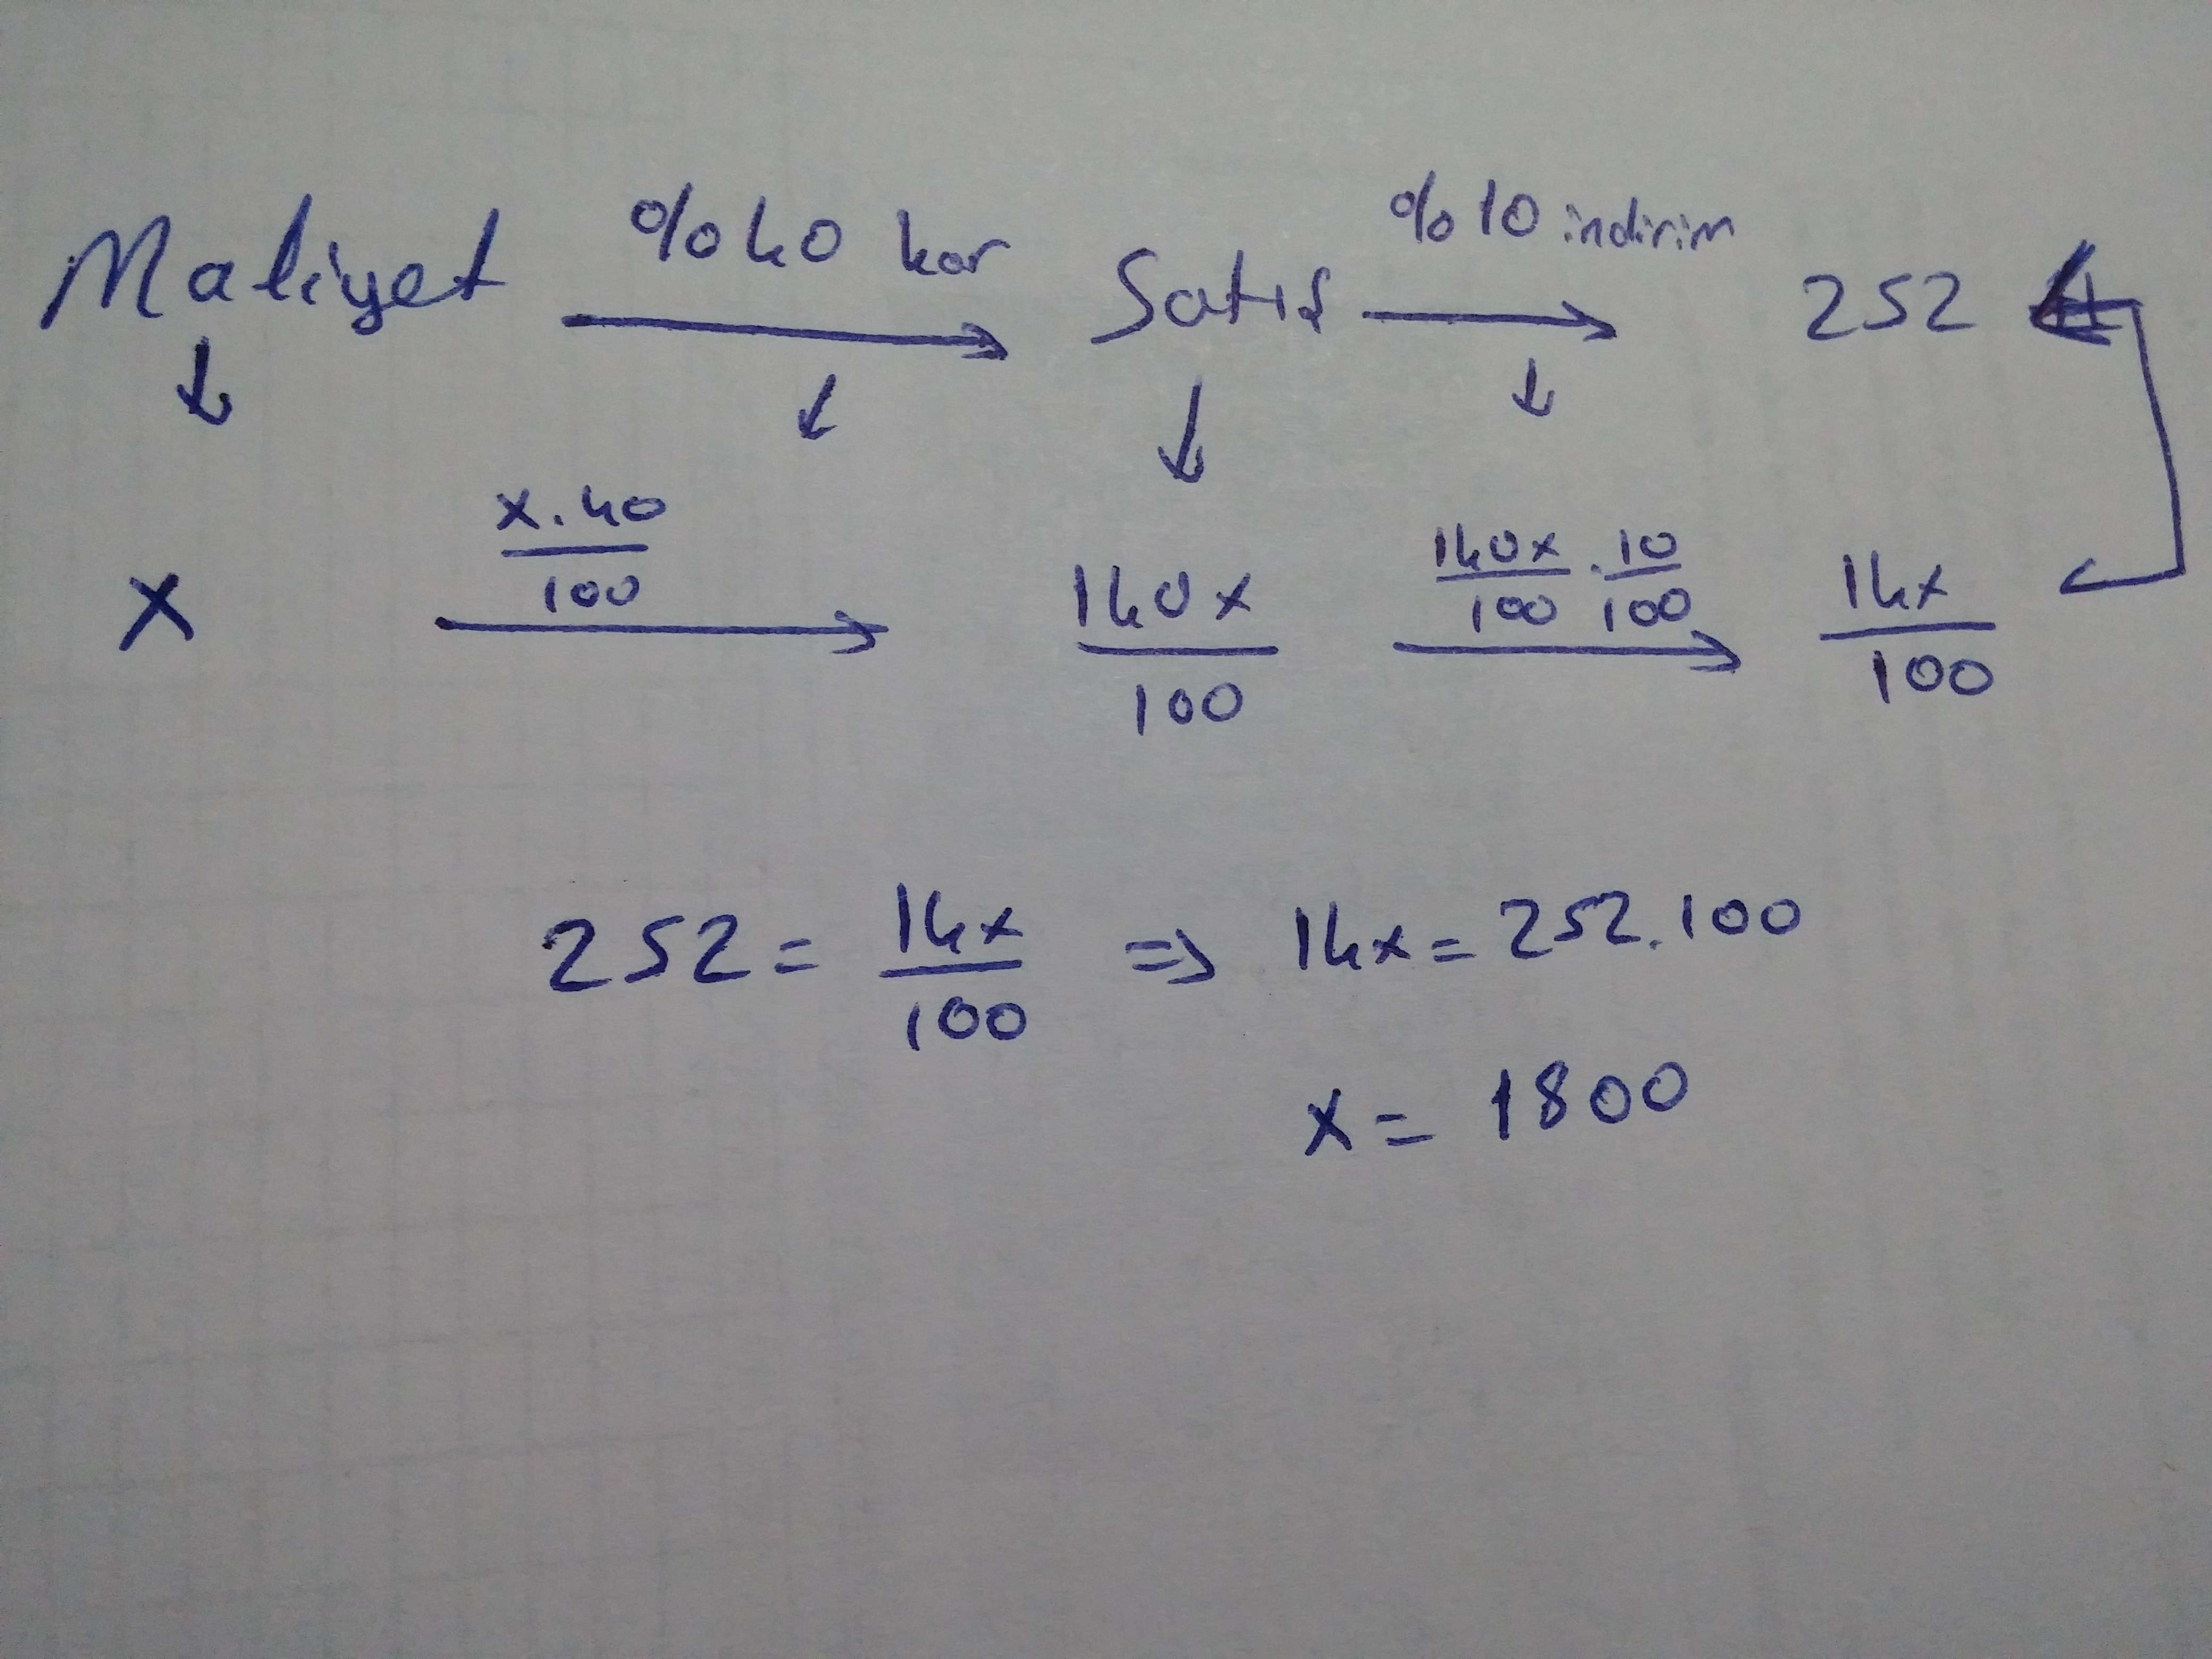 Maliyet %40 kar Satış %10 indirim 252
x x.40/100 140x/100 140x/100 . 10/100 14x/100
252 = 14x/100 ⇒ 14x = 252.100
x = 1800